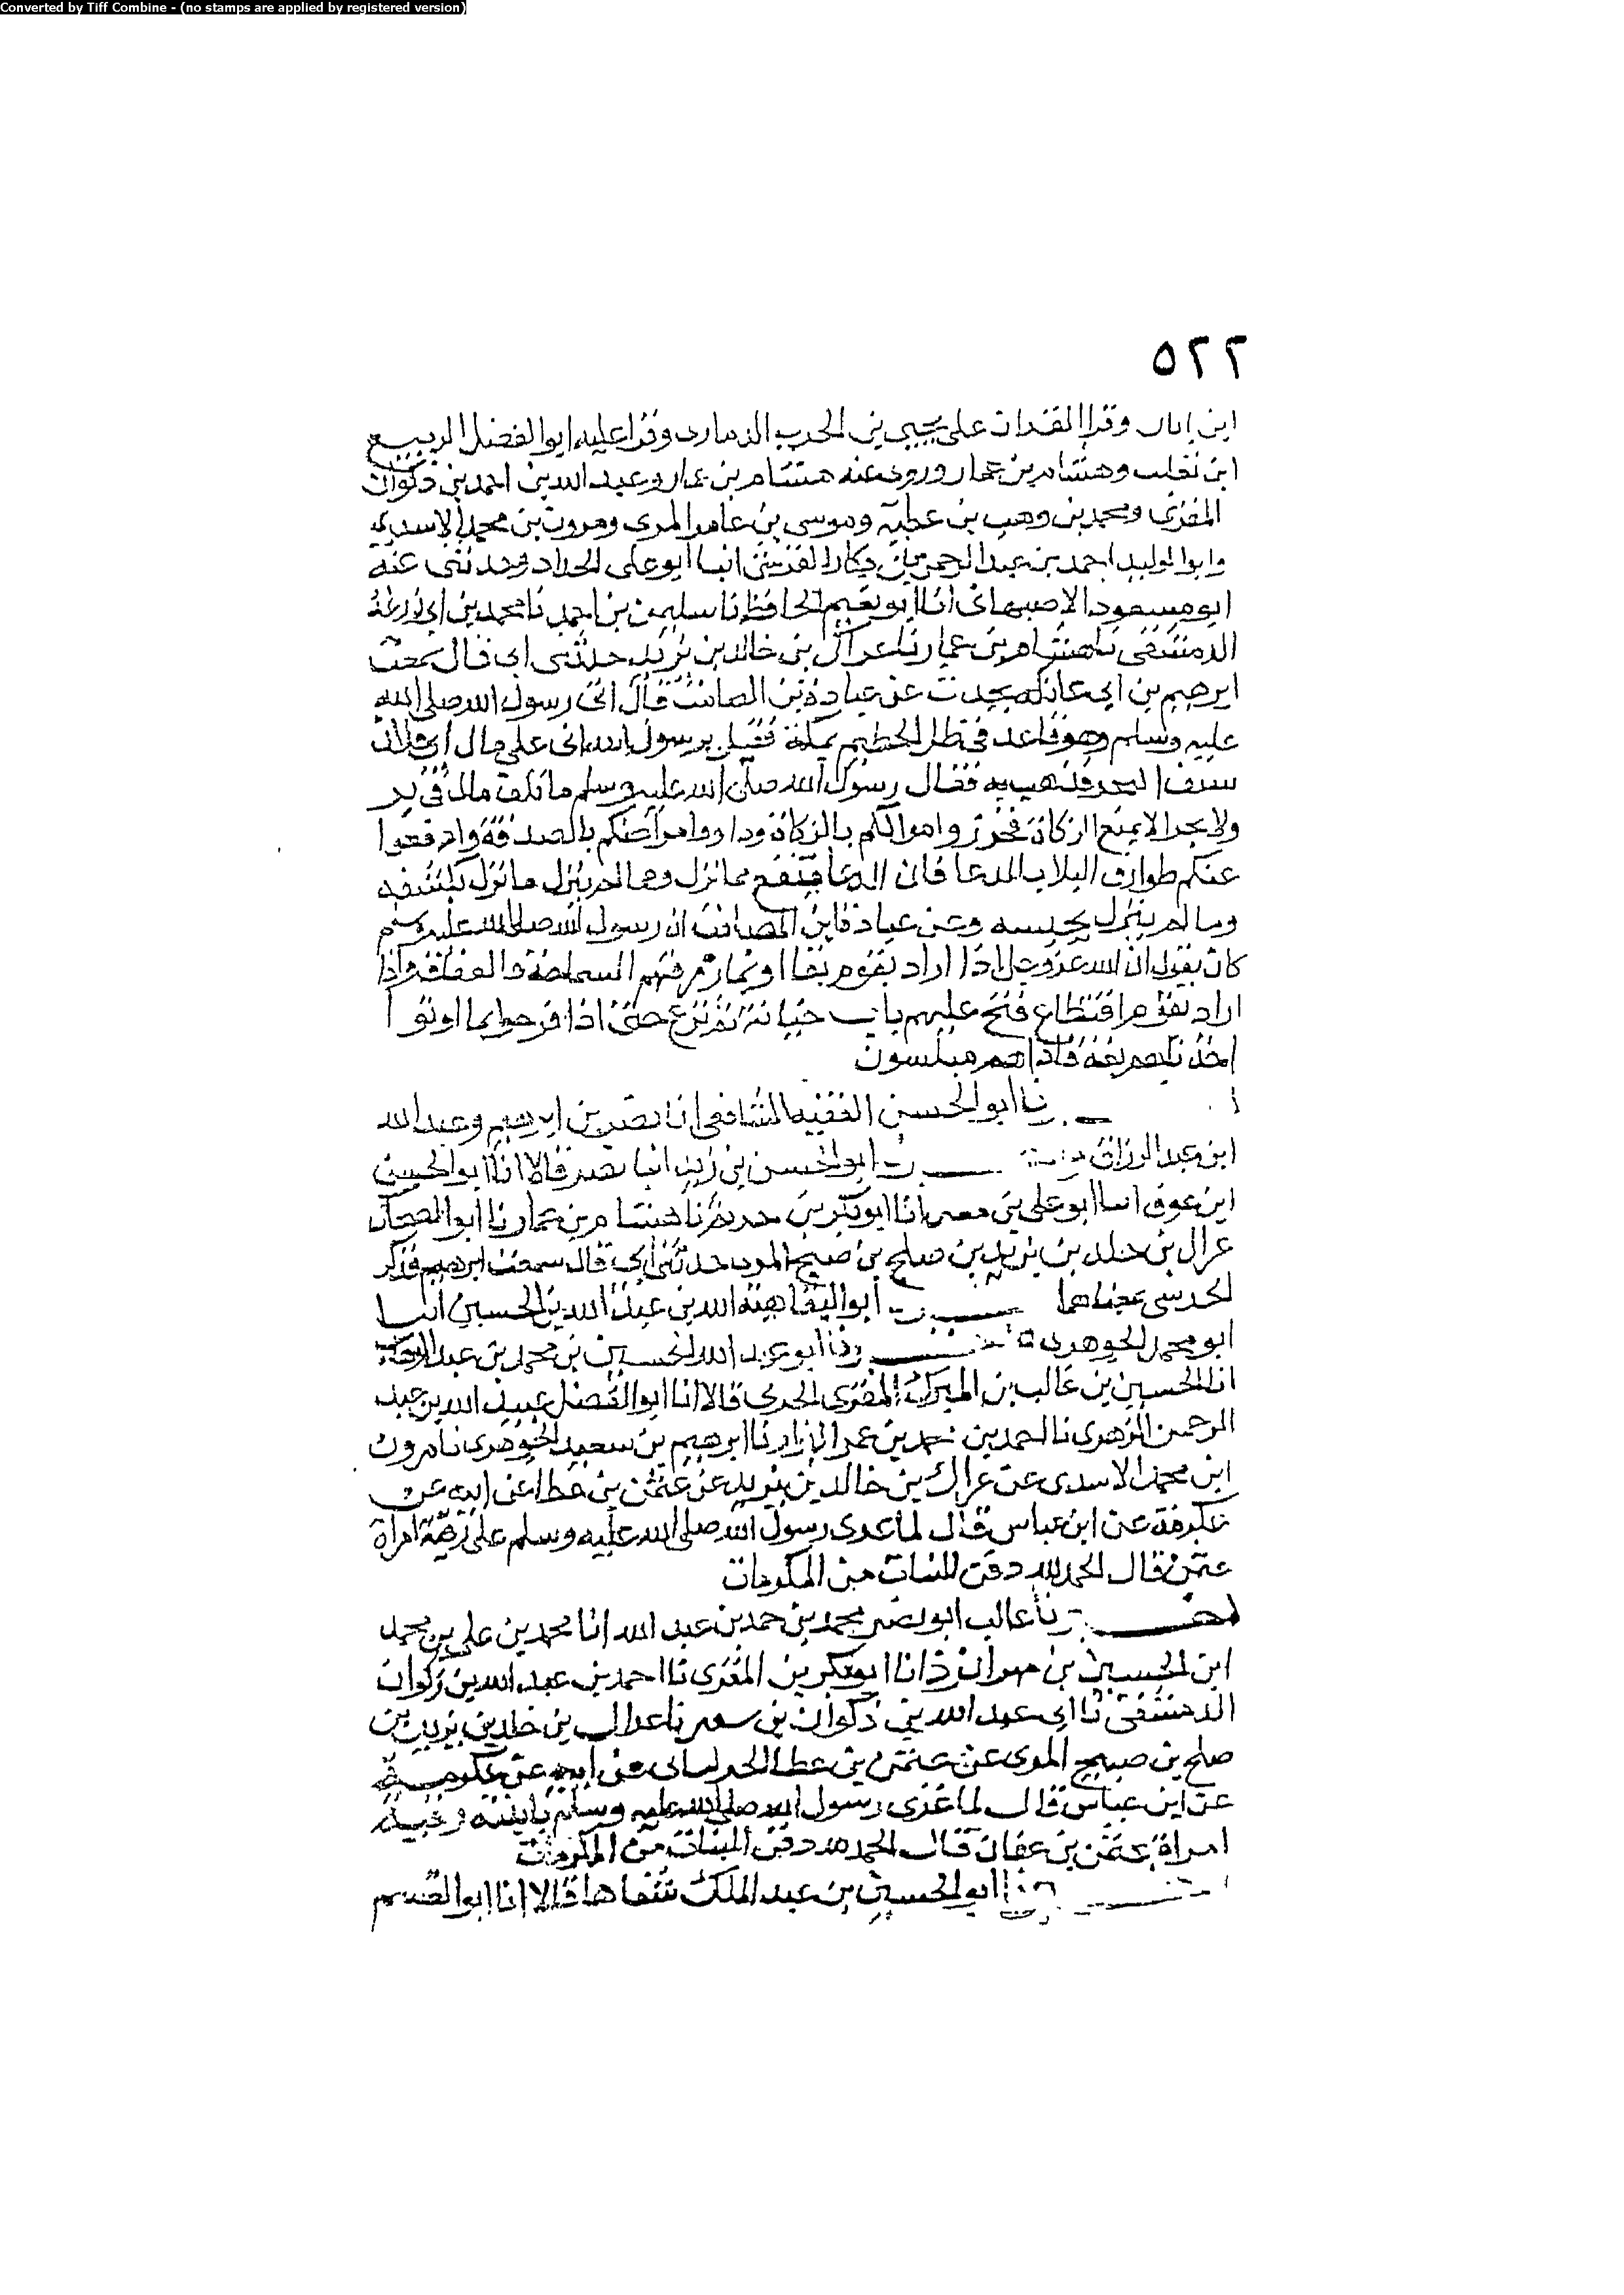 Converted by Tiff Combine - (no stamps are applied by registered version)
٥٢٢
ابن ابان وقرا القران على يحيى بن الحرب الذمارى وقرا عليه ابو الفضل الربيع
ابن تغلب وهشام بن عمار وروى عنه هشام بن عمار وعبد الله بن احمد بن ذكوان
المقرى ومحمد بن وهب بن عطية وموسى بن عامر المرى ومروان بن محمد الاسدى
وابو الوليد احمد بن عبد الرحمن بن بكار القرشى انبا ابو على الحداد وحدثنى عنه
ابو مسعود الاصبهانى انا ابو نعيم الحافظ نا سليمن بن احمد نا محمد بن ابى زرعة
الدمشقى نا هشام بن عمار نا عراك بن خالد بن يزيد حدثنى ابى قال سمعت
ابرهيم بن ابى عبلة يحدث عن عبادة بن الصامت قال اتى رسول الله صلى الله
عليه وسلم وهو قاعد فى ظل الحطيم بمكة فقيل يرسول الله اتى على مال ابى فلان
بسيف البحر فذهب به فقال رسول الله صلى الله عليه وسلم ما تلف مال فى بر
ولا بحر الا بمنع الزكاة فحرزوا اموالكم بالزكاة وداووا مرضاكم بالصدقة وادفعوا
عنكم طوارق البلا بالدعا فان الدعا ينفع مما نزل ومما لم ينزل ما نزل يكشفه
وما لم ينزل يحبسه وعن عبادة ابن الصامت ان رسول الله صلى الله عليه وسلم
كان يقول ان الله عز وجل اذا اراد بقوم بقا او نما رزقهم السماحة والعفاف واذا
اراد بقوم اقتطاع فتح عليهم باب خيانة ثم نزع حتى اذا فرحوا بما اوتوا
اخذناهم بغتة فاذا هم مبلسون
نا ابو الحسن الفقيه الشافعى انا نصر بن ابرهيم وعبد الله
ابن عبد الرزاق ابو الحسن بن زيد انبا نصر قالا انا ابو الحسن
ابن عوف انبا ابو على بن منير انا ابو بكر بن خريم نا هشام بن عمار نا ابو الضحاك
عراك بن خلد بن يزيد بن صلح بن صبيح المرى حدثنى ابى قال سمعت ابرهيم فذكر
الحديثين بمعناهما ابو البقا هبة الله بن عبد الله بن الحسين انبا
ابو محمد الجوهرى ابو عبد الله الحسين بن محمد بن عبد الوهاب
انا الحسين بن غالب بن المبارك المقرى الحربى قالا انا ابو الفضل عبيد الله بن عبد
الرحمن الزهرى نا احمد بن محمد بن عمر نا ابرهيم بن سعيد الجوهرى نا مروان
ابن محمد الاسدى عن عراك بن خالد بن يزيد عن عثمن بن عطا عن ابيه عن
عكرمة عن ابن عباس قال لما عزى رسول الله صلى الله عليه وسلم على رقية امراة
عثمن قال الحمد لله دفن البنات من المكرمات
اخبرنا غالب ابو نصر محمد بن حمد بن عبد الله انا محمد بن على بن محمد
ابن الحسين بن مهران انا ابو بكر بن المقرى نا احمد بن عبد الله بن ذكوان
الدمشقى نا ابى عبد الله بن ذكوان بن بشير نا عراك بن خلد بن يزيد بن
صلح بن صبيح المرى عن عثمن بن عطا الخراسانى عن ابيه عن عكرمة
عن ابن عباس قال لما عزى رسول الله صلى الله عليه وسلم بابنته رقية
امراة عثمن بن عفان قال الحمد لله دفن البنات من المكرمات
ابو الحسين بن عبد الملك شفاها قالا انا ابو القسم